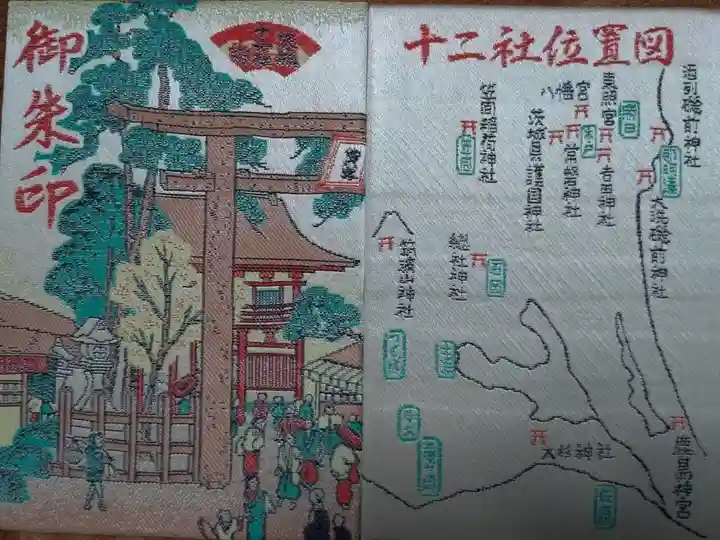 御朱印
茨城
十二社
十二社位置図
酒列磯前神社
大洗磯前神社
東照宮
吉田神社
常磐神社
八幡宮
茨城県護国神社
笠間稲荷神社
筑波山神社
総社神社
大杉神社
鹿島神宮
水戸
笠間
石岡
つくば
土浦